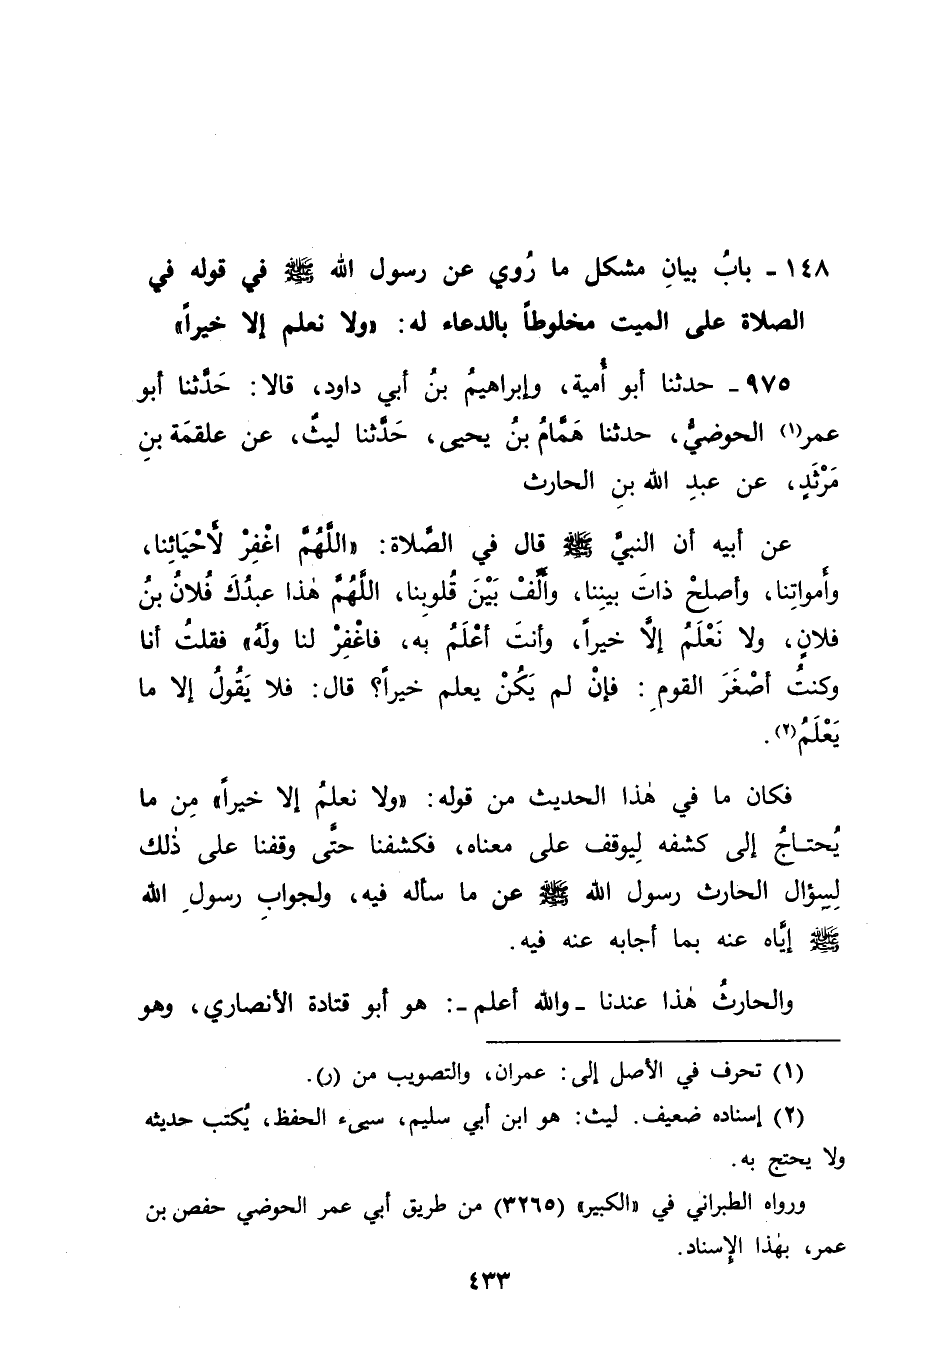 ١٤٨ - بابُ بيانِ مشكل ما رُوي عن رسول الله ﷺ في قوله في
الصلاة على الميت مخلوطاً بالدعاء له: «ولا نعلم إلا خيراً»
٩٧٥ - حدثنا أبو أُمية، وإبراهيمُ بنُ أبي داود، قالا: حَدَّثنا أبو
عمر(١) الحوضيُّ، حدثنا هَمَّامُ بنُ يحيى، حَدَّثنا ليثٌ، عن علقمَة بنِ
مَرْثَدٍ، عن عبدِ الله بنِ الحارث
عن أبيه أن النبيَّ ﷺ قال في الصَّلاة: «اللَّهُمَّ اغْفِرْ لأَحْيَائِنا،
وأَمواتِنا، وأصلِحْ ذاتَ بينِنا، وأَلِّفْ بَيْنَ قُلوبِنا، اللَّهُمَّ هٰذا عبدُكَ فُلانُ بنُ
فلانٍ، ولا نَعْلَمُ إلَّا خيراً، وأنتَ أعْلَمُ به، فاغْفِرْ لنا ولَهُ» فقلتُ أنا
وكنتُ أصْغَرَ القومِ: فإنْ لم يَكُنْ يعلم خيراً؟ قال: فلا يَقُولُ إلا ما
يَعْلَمُ(٢).
فكان ما في هٰذا الحديث من قوله: «ولا نعلمُ إلا خيراً» مِن ما
يُحتـاجُ إلى كشفه لِيوقف على معناه، فكشفنا حتَّى وقفنا على ذٰلك
لِسؤال الحارث رسول الله ﷺ عن ما سأله فيه، ولجوابِ رسولِ الله
ﷺ إيَّاه عنه بما أجابه عنه فيه.
والحارثُ هٰذا عندنا - والله أعلم -: هو أبو قتادة الأنصاري، وهو
(١) تحرف في الأصل إلى: عمران، والتصويب من (ر).
(٢) إسناده ضعيف. ليث: هو ابن أبي سليم، سيىء الحفظ، يُكتب حديثه
ولا يحتج به.
ورواه الطبراني في «الكبير» (٣٢٦٥) من طريق أبي عمر الحوضي حفص بن
عمر، بهٰذا الإِسناد.
٤٣٣